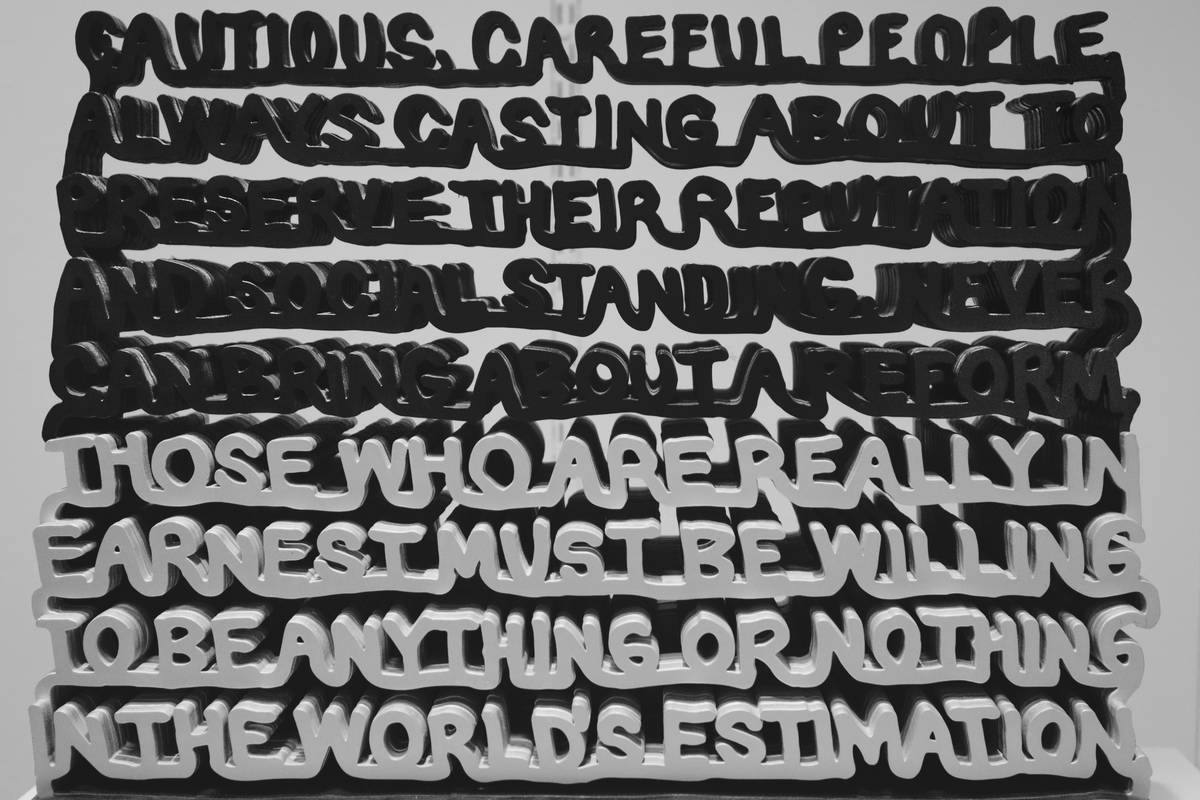 CAUTIOUS, CAREFUL PEOPLE,
ALWAYS CASTING ABOUT TO
PRESERVE THEIR REPUTATION
AND SOCIAL STANDING, NEVER
CAN BRING ABOUT A REFORM.
THOSE WHO ARE REALLY IN
EARNEST MUST BE WILLING
TO BE ANYTHING OR NOTHING
IN THE WORLD'S ESTIMATION.